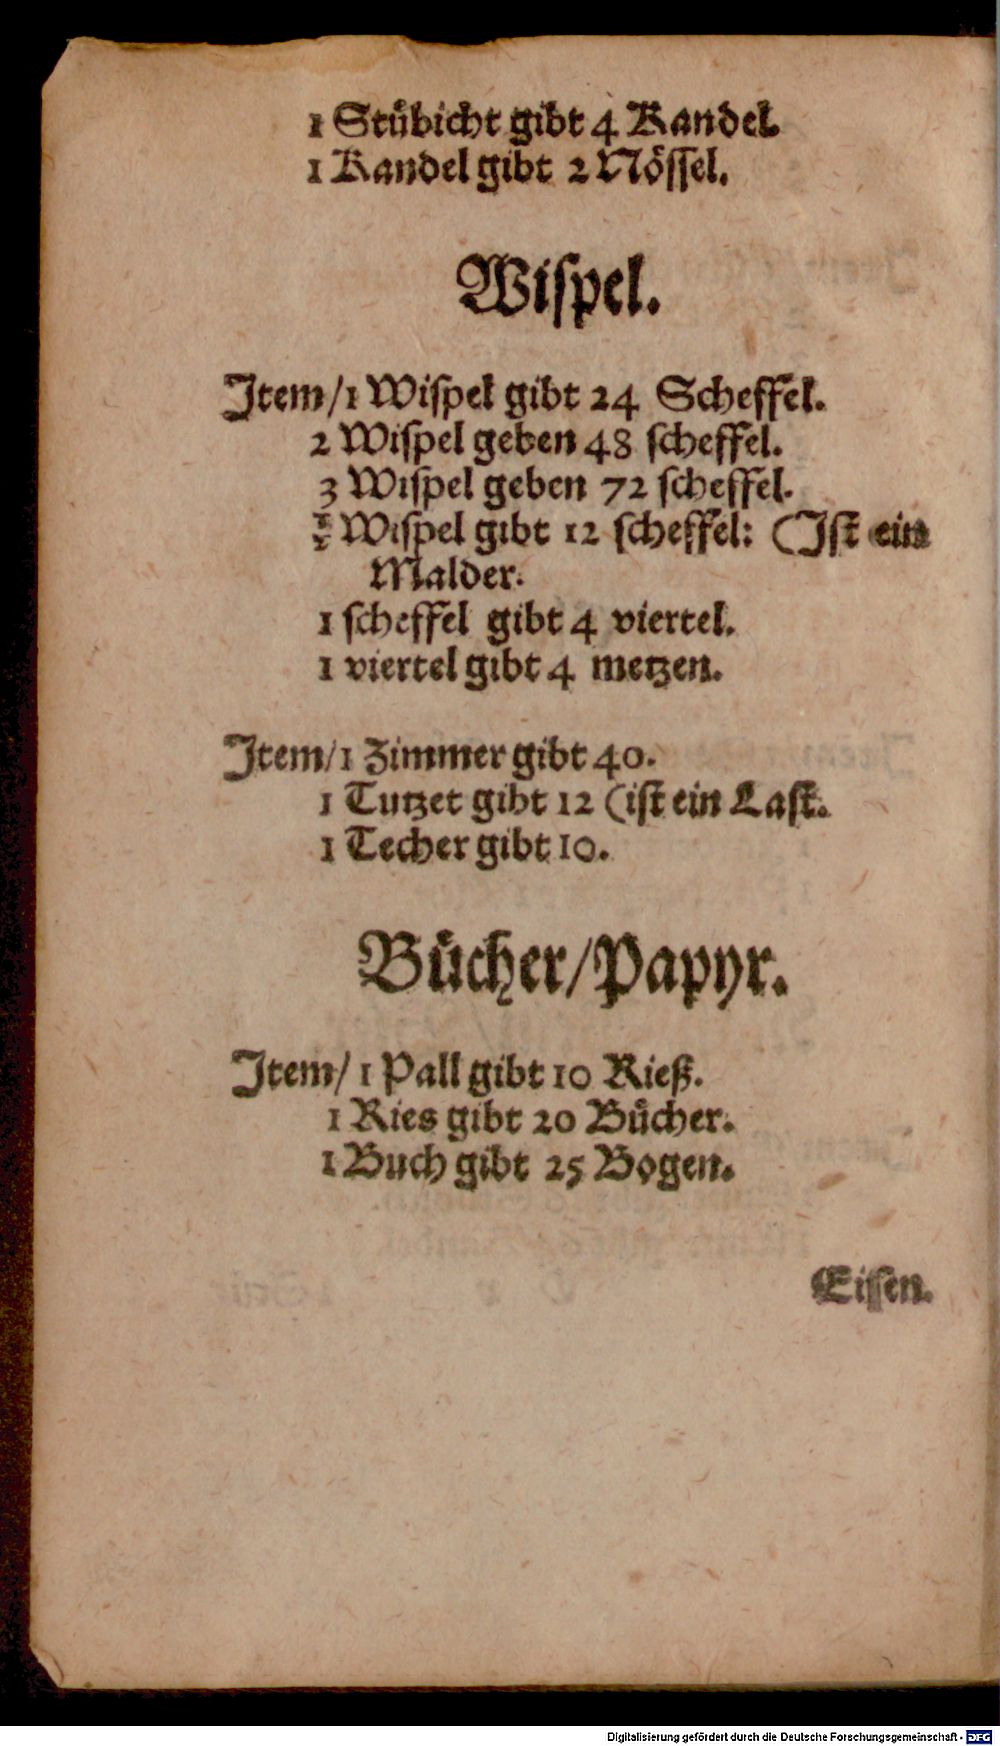 1 Stůbicht gibt 4 Kandel.
1 Kandel gibt 2 Nössel.
Wiſpel.
Item/1 Wiſpel gibt 24 Scheffel.
2 Wiſpel geben 48 ſcheffel.
3 Wiſpel geben 72 ſcheffel.
½ Wiſpel gibt 12 ſcheffel: (Iſt ein
Malder.
1 ſcheffel gibt 4 viertel.
1 viertel gibt 4 metzen.
Item/1 Zimmer gibt 40.
1 Tutzet gibt 12 (iſt ein Laſt.
1 Techer gibt 10.
Bůcher/Papyr.
Item/ 1 Pall gibt 10 Rieß.
1 Ries gibt 20 Bůcher.
1 Buch gibt 25 Bogen.
Eiſſen.
Digitalisierung gefördert durch die Deutsche Forschungsgemeinschaft - DFG